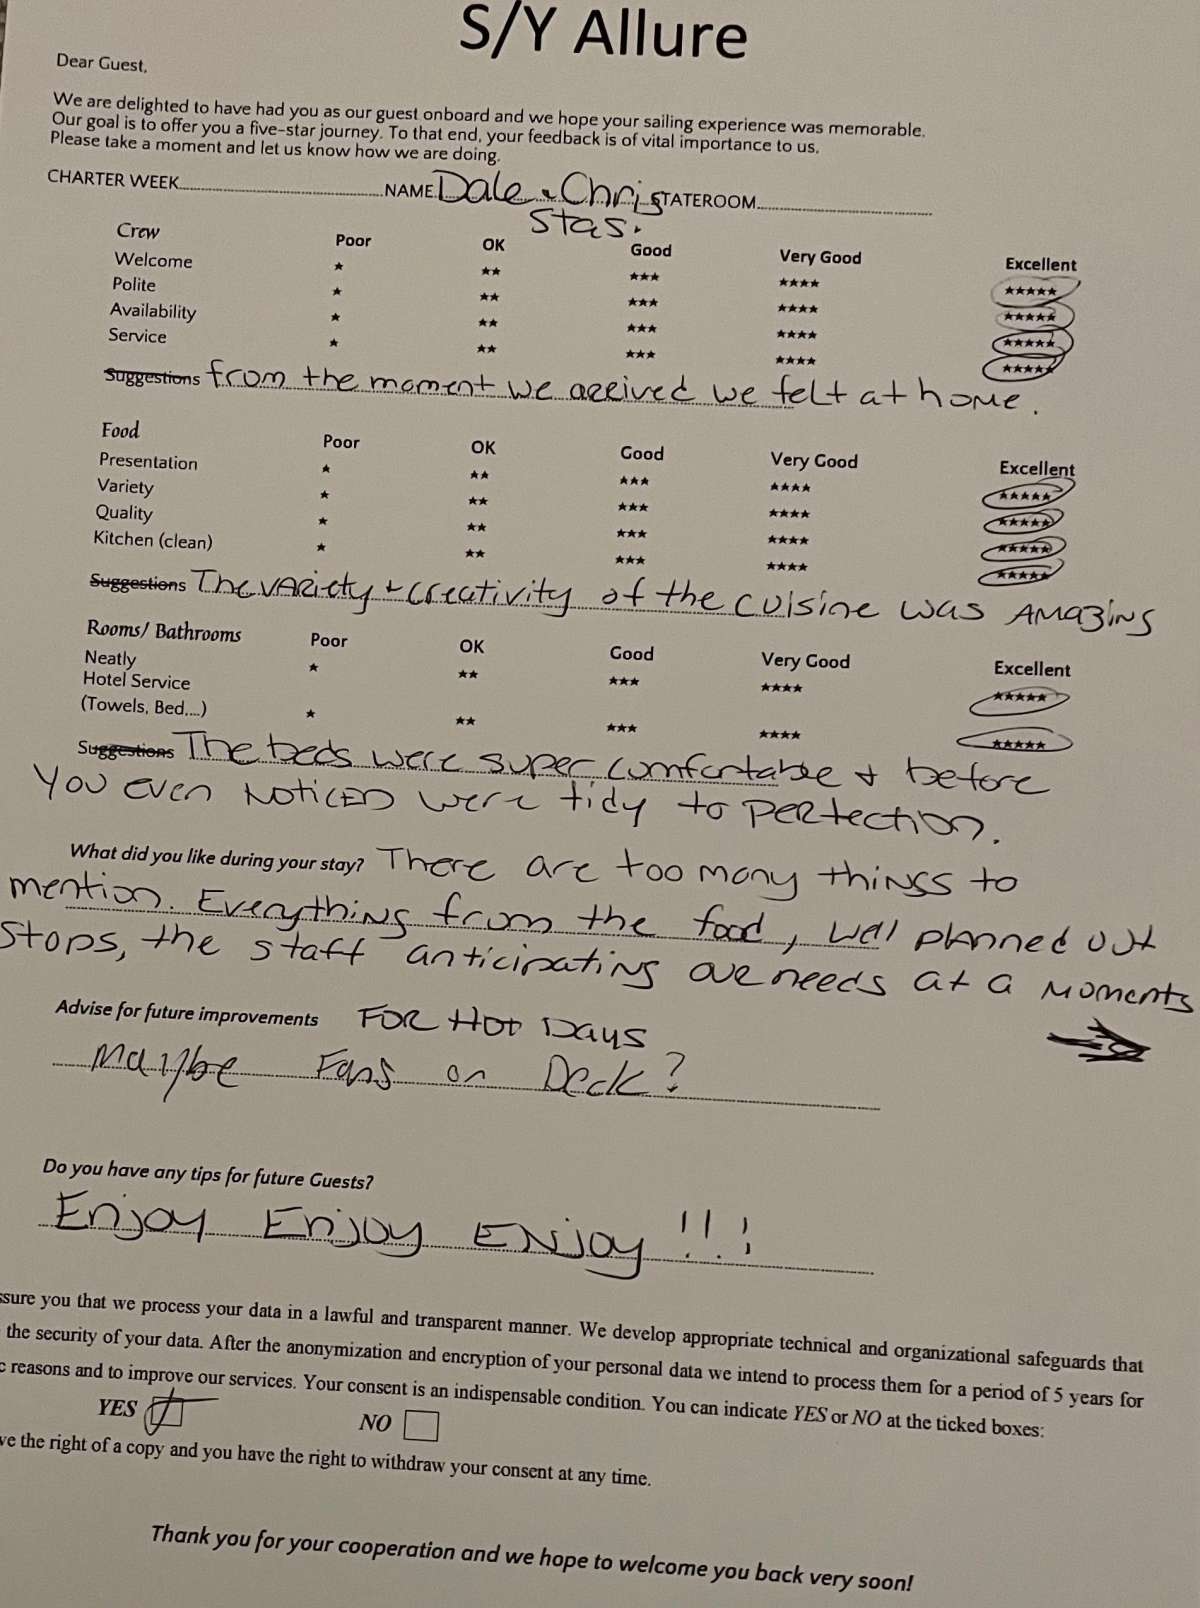 S/Y Allure
Dear Guest,
We are delighted to have had you as our guest onboard and we hope your sailing experience was memorable.
Our goal is to offer you a five-star journey. To that end, your feedback is of vital importance to us.
Please take a moment and let us know how we are doing.
CHARTER WEEK NAME Dale & Chris STATEROOM
Stas.
Crew Poor OK Good Very Good Excellent
Welcome ★ ★★ ★★★ ★★★★ ★★★★★
Polite ★ ★★ ★★★ ★★★★ ★★★★★
Availability ★ ★★ ★★★ ★★★★ ★★★★★
Service ★ ★★ ★★★ ★★★★ ★★★★★
Suggestions from the moment we arrived we felt at home.
Food Poor OK Good Very Good Excellent
Presentation ★ ★★ ★★★ ★★★★ ★★★★★
Variety ★ ★★ ★★★ ★★★★ ★★★★★
Quality ★ ★★ ★★★ ★★★★ ★★★★★
Kitchen (clean) ★ ★★ ★★★ ★★★★ ★★★★★
Suggestions The variety & creativity of the cuisine was AMAZING
Rooms/ Bathrooms Poor OK Good Very Good Excellent
Neatly ★ ★★ ★★★ ★★★★ ★★★★★
Hotel Service
(Towels, Bed,...) ★ ★★ ★★★ ★★★★ ★★★★★
Suggestions The beds were super comfortable & before
you even NOTICED were tidy to perfection.
What did you like during your stay? There are too many things to
mention. Everything from the food, well planned out
stops, the staff anticipating our needs at a moments
Advise for future improvements FOR Hot Days
Maybe Fans on Deck?
Do you have any tips for future Guests?
Enjoy Enjoy ENjoy!!!
ssure you that we process your data in a lawful and transparent manner. We develop appropriate technical and organizational safeguards that
the security of your data. After the anonymization and encryption of your personal data we intend to process them for a period of 5 years for
c reasons and to improve our services. Your consent is an indispensable condition. You can indicate YES or NO at the ticked boxes:
YES NO
ve the right of a copy and you have the right to withdraw your consent at any time.
Thank you for your cooperation and we hope to welcome you back very soon!